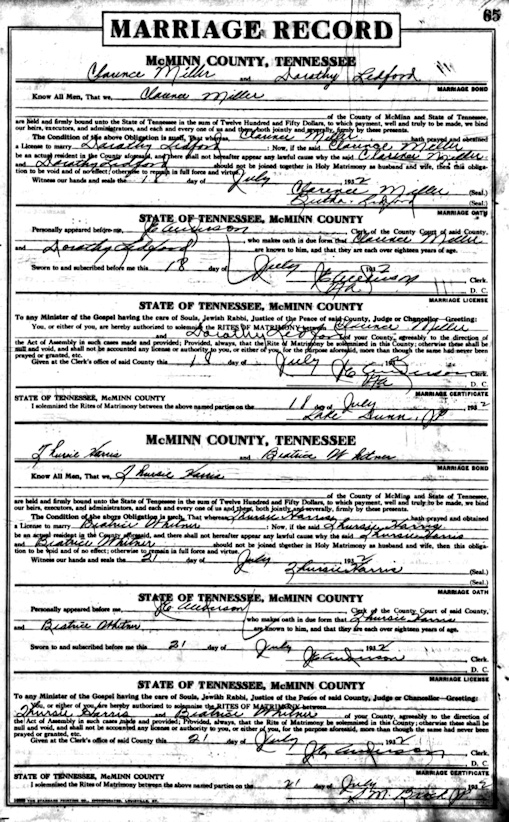 65
MARRIAGE RECORD
McMINN COUNTY, TENNESSEE
Clarence Miller and Dorothy Ledford
MARRIAGE BOND
Know All Men, That we, Clarence Miller
of the County of McMinn and State of Tennessee,
are held and firmly bound unto the State of Tennessee in the sum of Twelve Hundred and Fifty Dollars, to which payment, well and truly to be made, we bind
our heirs, executors, and administrators, and each and every one of us and them, both jointly and severally, firmly by these presents.
The Condition of the above Obligation is such, That whereas Clarence Miller hath prayed and obtained
a License to marry Dorothy Ledford ; Now, if the said Clarence Miller
be an actual resident in the County aforesaid, and there shall not hereafter appear any lawful cause why the said Clarence Miller
and Dorothy Ledford should not be joined together in Holy Matrimony as husband and wife, then this obliga-
tion to be void and of no effect; otherwise to remain in full force and virtue.
Witness our hands and seals the 18 day of July 1932
Clarence Miller (Seal.)
Ledford (Seal.)
MARRIAGE OATH
STATE OF TENNESSEE, McMINN COUNTY
Personally appeared before me, J C Anderson Clerk of the County Court of said County,
who makes oath in due form that Clarence Miller
and Dorothy Ledford are known to him, and that they are each over eighteen years of age.
Sworn to and subscribed before me this 18 day of July 1932
J C Anderson Clerk.
D. C.
MARRIAGE LICENSE
STATE OF TENNESSEE, McMINN COUNTY
To any Minister of the Gospel having the care of Souls, Jewish Rabbi, Justice of the Peace of said County, Judge or Chancellor—Greeting:
You, or either of you, are hereby authorized to solemnize the RITES OF MATRIMONY between Clarence Miller
and Dorothy Ledford of your County, agreeably to the direction of
the Act of Assembly in such cases made and provided; Provided, always, that the Rite of Matrimony be solemnized in this County; otherwise these shall be
null and void, and shall not be accounted any license or authority to you, or either of you, for the purpose aforesaid, more than though the same had never been
prayed or granted, etc.
Given at the Clerk's office of said County this 18 day of July 1932
J C Anderson Clerk.
D. C.
MARRIAGE CERTIFICATE
STATE OF TENNESSEE, McMINN COUNTY
I solemnized the Rites of Matrimony between the above named parties on the 18 July 1932
Luke Dunn, JP
McMINN COUNTY, TENNESSEE
Thursie Harris and Beatrice Whitner
MARRIAGE BOND
Know All Men, That we, Thursie Harris
of the County of McMinn and State of Tennessee,
are held and firmly bound unto the State of Tennessee in the sum of Twelve Hundred and Fifty Dollars, to which payment, well and truly to be made, we bind
our heirs, executors, and administrators, and each and every one of us and them, both jointly and severally, firmly by these presents.
The Condition of the above Obligation is such, That whereas Thursie Harris hath prayed and obtained
a License to marry Beatrice Whitner ; Now, if the said Thursie Harris
be an actual resident in the County aforesaid, and there shall not hereafter appear any lawful cause why the said Thursie Harris
and Beatrice Whitner should not be joined together in Holy Matrimony as husband and wife, then this obliga-
tion to be void and of no effect; otherwise to remain in full force and virtue.
Witness our hands and seals the 21 day of July 1932
Thursie Harris (Seal.)
(Seal.)
MARRIAGE OATH
STATE OF TENNESSEE, McMINN COUNTY
Personally appeared before me, J C Anderson Clerk of the County Court of said County,
who makes oath in due form that Thursie Harris
and Beatrice Whitner are known to him, and that they are each over eighteen years of age.
Sworn to and subscribed before me this 21 day of July 1932
J C Anderson Clerk.
D. C.
MARRIAGE LICENSE
STATE OF TENNESSEE, McMINN COUNTY
To any Minister of the Gospel having the care of Souls, Jewish Rabbi, Justice of the Peace of said County, Judge or Chancellor—Greeting:
You, or either of you, are hereby authorized to solemnize the RITES OF MATRIMONY between
Thursie Harris and Beatrice Whitner of your County, agreeably to the direction of
the Act of Assembly in such cases made and provided; Provided, always, that the Rite of Matrimony be solemnized in this County; otherwise these shall be
null and void, and shall not be accounted any license or authority to you, or either of you, for the purpose aforesaid, more than though the same had never been
prayed or granted, etc.
Given at the Clerk's office of said County this 21 day of July 1932
J C Anderson Clerk.
D. C.
MARRIAGE CERTIFICATE
STATE OF TENNESSEE, McMINN COUNTY
I solemnized the Rites of Matrimony between the above named parties on the 21 July 1932
S M JP
THE STANDARD PRINTING CO., INCORPORATED, LOUISVILLE, KY.